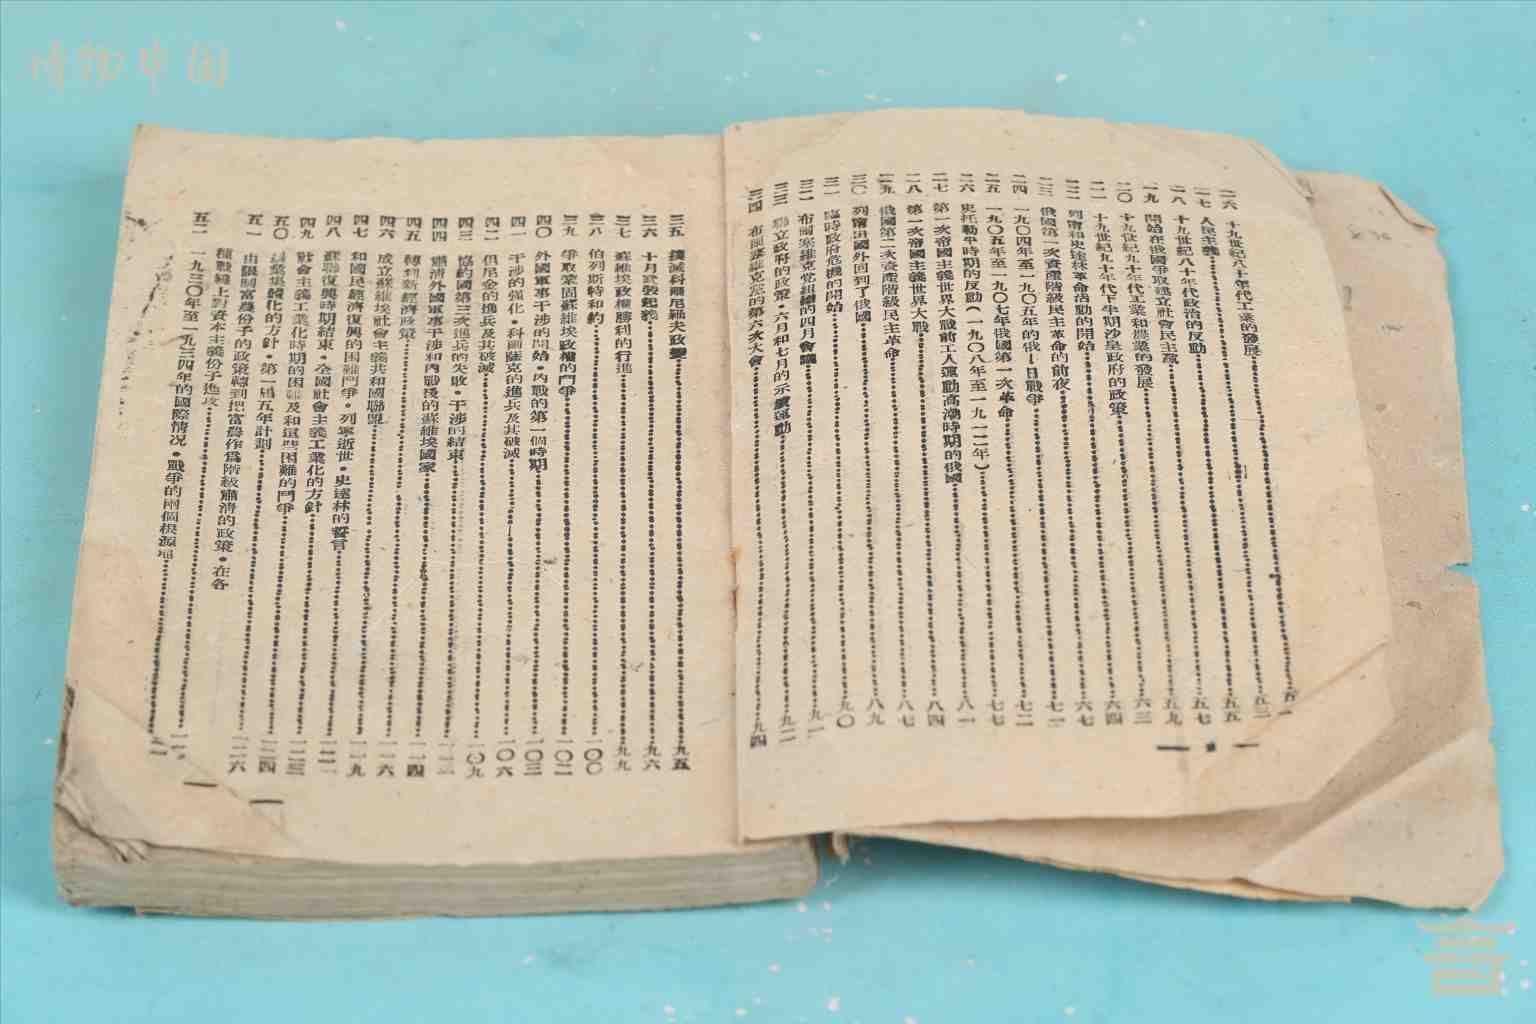 博物中国
一六 十九世紀八十年代工業的發展 五一
一七 人民主義 五三
一八 十九世紀八十年代政治的反動 五五
一九 開始在俄國爭取建立社會民主黨 五七
二〇 十九世紀九十年代工業和農業的發展 五九
二一 十九世紀九十年代下半期沙皇政府的政策 六三
二二 列甯和史達林革命活動的開始 六四
二三 俄國第一次資產階級民主革命的前夜 六七
二四 一九〇四年至一九〇五年的俄—日戰爭 七一
二五 一九〇五年至一九〇七年俄國第一次革命 七二
二六 史托勒平時期的反動(一九〇八年至一九一二年) 七七
二七 第一次帝國主義世界大戰前工人運動高潮時期的俄國 八一
二八 第一次帝國主義世界大戰 八四
二九 俄國第二次資產階級民主革命 八七
三〇 列甯由國外回到了俄國 八九
三一 臨時政府危機的開始 九〇
三二 布爾塞維克黨組織的四月會議 九一
三三 聯立政府的政策·六月和七月的示威運動 九二
三四 布爾塞維克黨的第六次大會 九四
三五 撲滅科爾尼羅夫政變 九五
三六 十月武裝起義 九六
三七 蘇維埃政權勝利的行進 九九
三八 伯列斯特和約 一〇〇
三九 爭取鞏固蘇維埃政權的鬥爭 一〇二
四〇 外國軍事干涉的開始·內戰的第一個時期 一〇三
四一 干涉的强化·科爾薩克的進兵及其破滅 一〇六
四二 但尼金的進兵及其破滅 一〇九
四三 協約國第三次進兵的失敗·干涉的結束
四四 肅清外國軍事干涉和內戰後的蘇維埃國家 一一四
四五 轉到新經濟政策 一一六
四六 成立蘇維埃社會主義共和國聯盟
四七 和國民經濟復興的困難鬥爭·列寧逝世·史達林的誓言 一一九
四八 蘇聯復興時期結束·全國社會主義工業化的方針
四九 社會主義工業化時期的困難及和這些困難的鬥爭
五〇 農業集體化的方針·第一屆五年計劃 一二四
五一 由限制富農份子的政策轉到把富農作爲階級肅清的政策·在各
種戰線上對資本主義份子進攻 一二六
五二 一九三〇年至一九三四年的國際情況·戰爭的兩個根源地